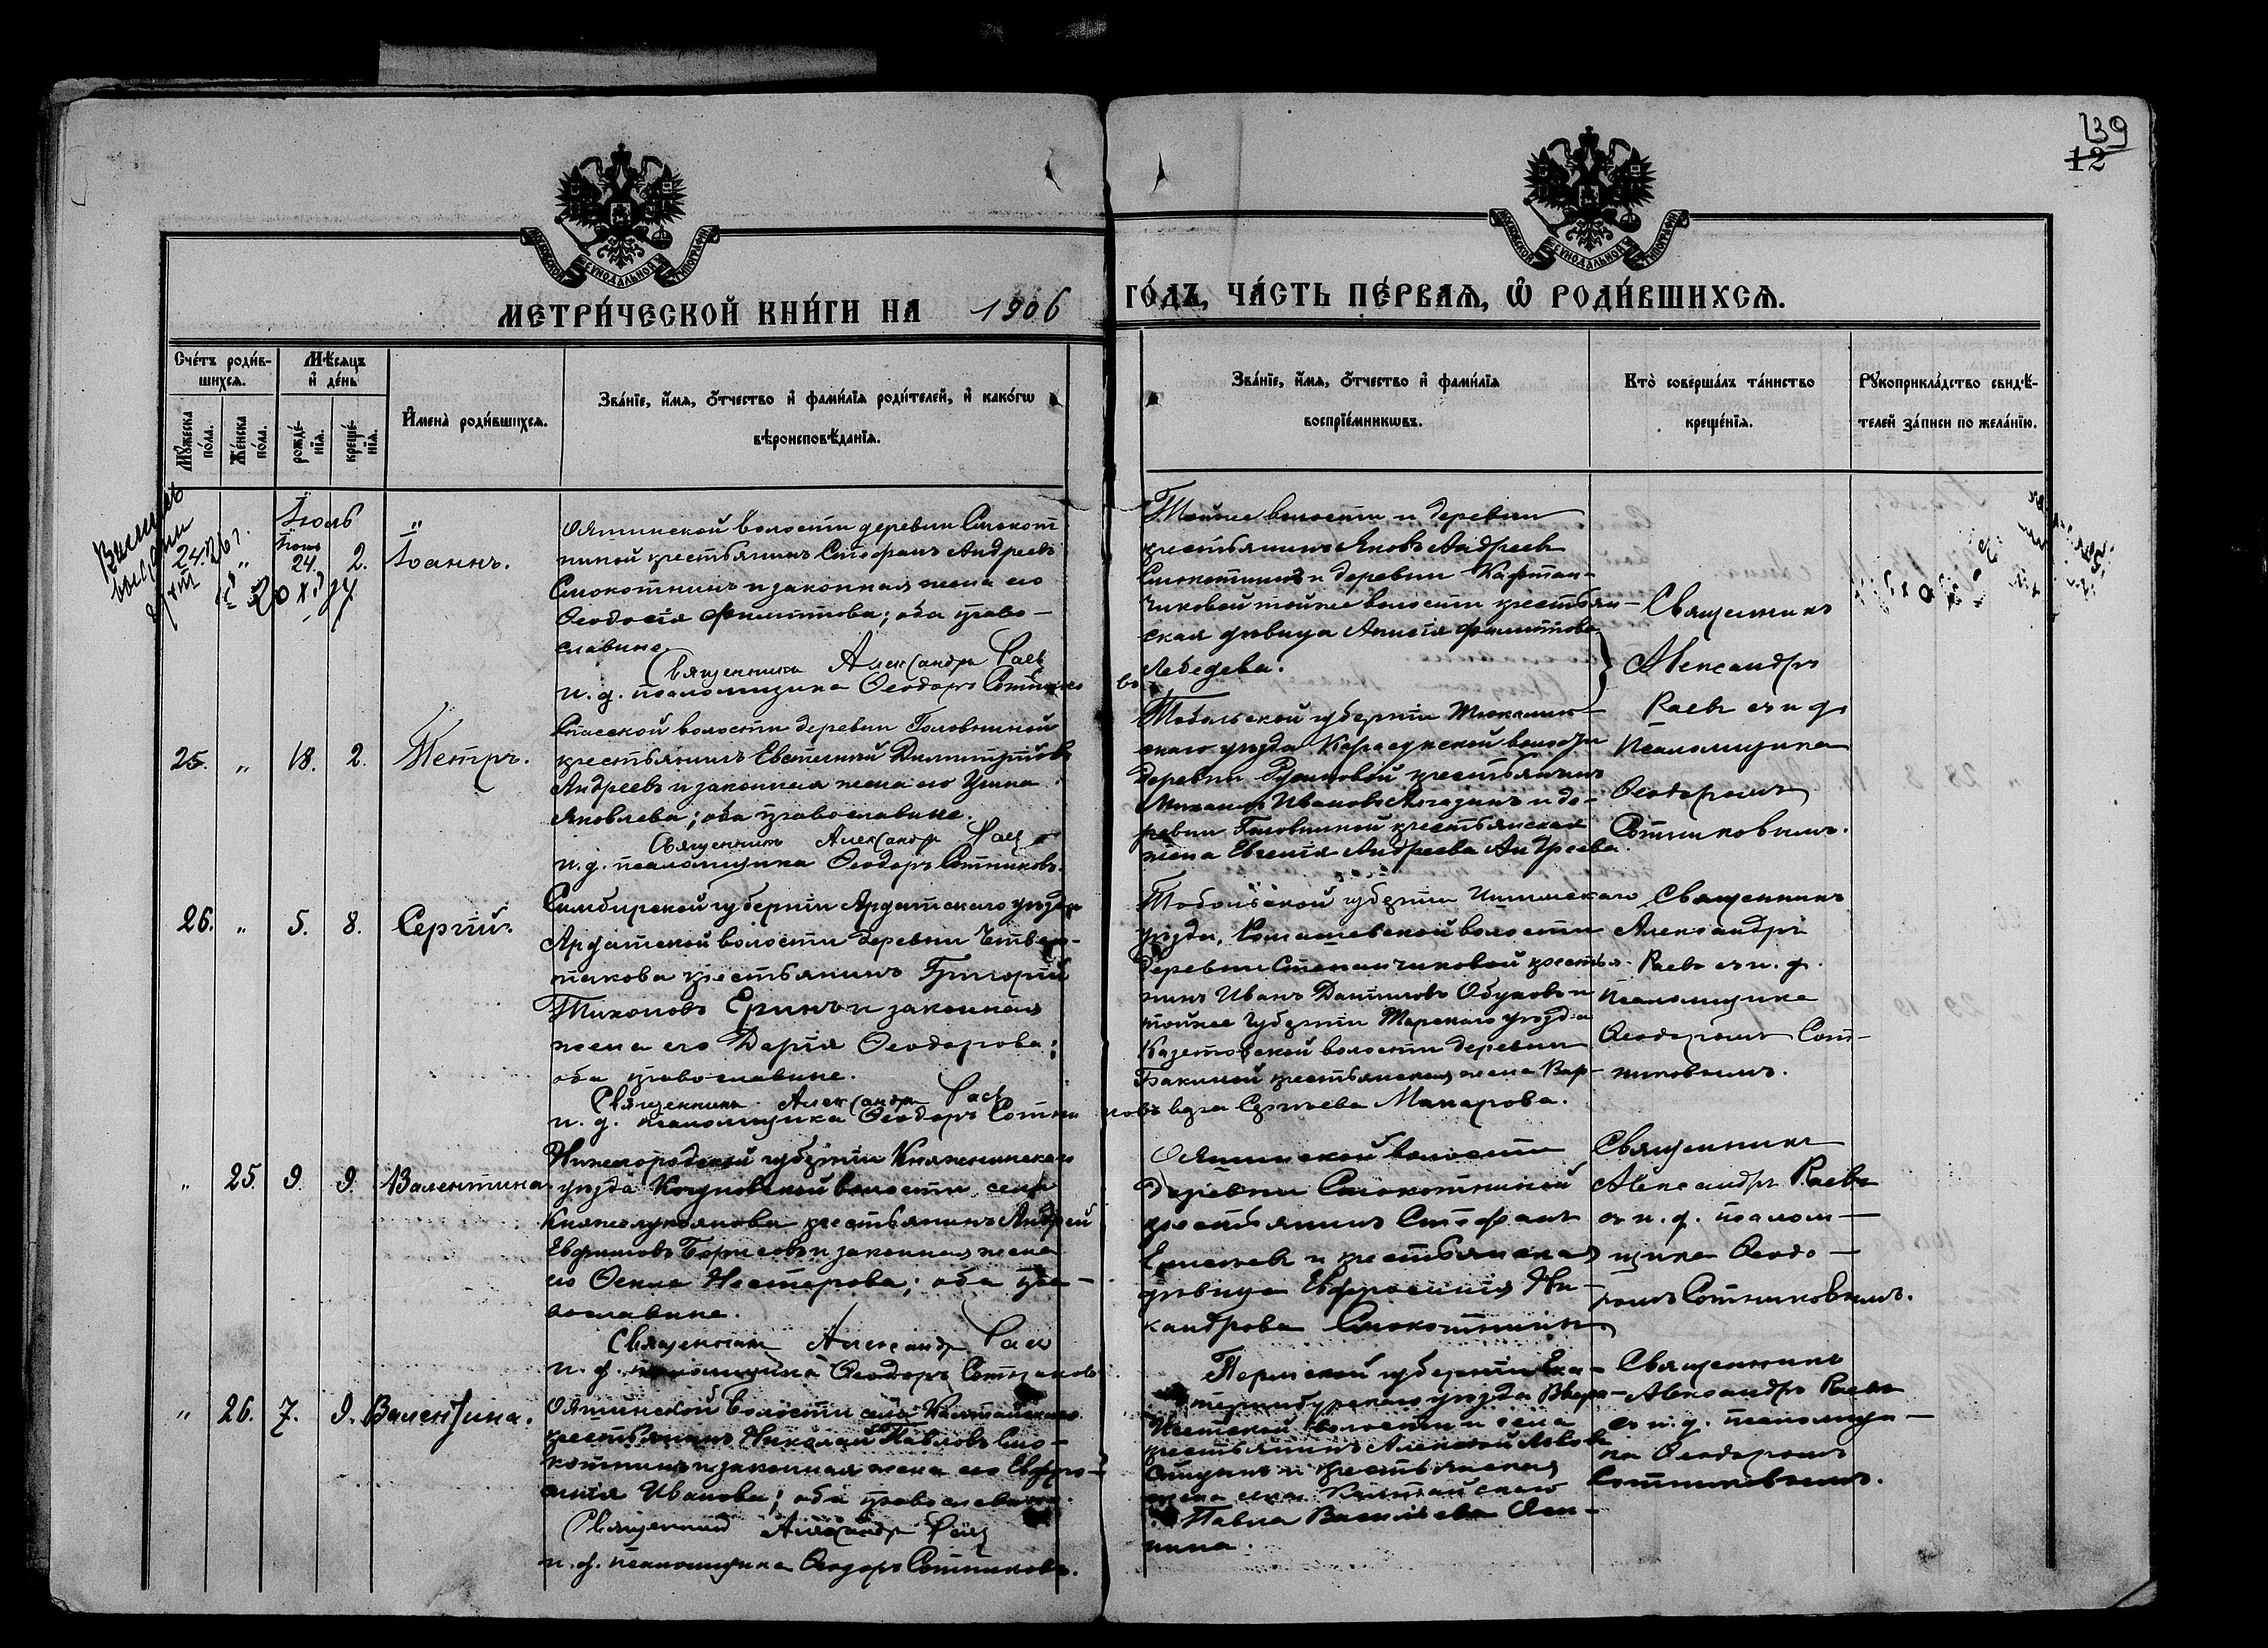 139
12
МОСКОВСКОЙ СѴНОДАЛЬНОЙ ТИПОГРАФІИ
МОСКОВСКОЙ СѴНОДАЛЬНОЙ ТИПОГРАФІИ
МЕТРИ́ЧЕСКОЙ КНИ́ГИ НА 1906 ГО́ДЪ, ЧА́СТЬ ПЕ́РВАЯ, Ѡ РОДИ́ВШИХСЯ.
Сче́тъ роди́в-
шихся.
Мꙋ́жеска по́ла.
Же́нска по́ла.
Мѣ́сяцъ
и҆ де́нь
рожде́-
нїя.
креще́-
нїя.
И҆мена̀ роди́вшихся.
Зва́нїе, и҆́мя, ѻ҆́тчество и҆ фами́лїя роди́телей, и҆ како́гѡ
вѣроисповѣ́данїя.
Зва́нїе, и҆́мя, ѻ҆́тчество и҆ фами́лїя
воспрїе́мникѡвъ.
Кто̀ соверша́лъ та́инство
креще́нїя.
Рꙋкоприкла́дство свидѣ́-
телей за́писи по жела́нїю.
Іюль
Іюнь
24. „ 24. 2. Іоаннъ.
Ояшинской волости деревни Смокот
ниной крестьянинъ Стефанъ Андреевъ
Смокотнинъ и законная жена его
Ѳеодосія Филиппова; оба право-
славные.
Священникъ Александръ Раевъ
и. д. псаломщика Ѳеодоръ Сотников
Тойже волости и деревни
крестьянинъ Яковъ Андреевъ
Смокотнинъ и деревни Кафтан-
чиковой тойже волости крестьян-
ская дѣвица Анисія Филиппова
Лебедева.
Священникъ
Александръ
Раевъ съ и д.
Псаломщика
Ѳеодоромъ
Сотниковымъ.
25. „ 18. 2. Петръ.
Спасской волости деревни Головниной
крестьянинъ Евстигній Димитріевъ
Андреевъ и законная жена его Ирина
Яковлева; оба православные.
Священникъ Александръ Раевъ
и. д. псаломщика Ѳеодоръ Сотниковъ.
Тобольской губерніи Тюкалин-
скаго уѣзда волости
деревни крестьянинъ
Михаилъ Ивановъ и де-
ревни Головниной крестьянская
жена Евгенія Андреева Андреева.
26. „ 5. 8. Сергій.
Симбирской губерніи Ардатскаго уѣзда
Ардатской волости деревни
крестьянинъ Григорій
Тихоновъ Еринъ и законная
жена его Дарія Ѳеодорова;
оба православные.
Священникъ Александръ Раевъ
и. д. псаломщика Ѳеодоръ Сотниковъ
Тобольской губерніи Ишимскаго
уѣзда, волости
деревни Степанчиковой крестья-
нинъ Иванъ Даниловъ Обуховъ и
тойже губерніи Тарскаго уѣзда
волости деревни
крестьянская жена Вар-
вара Сергѣева Макарова.
Священникъ
Александръ
Раевъ съ и. д.
Псаломщика
Ѳеодоромъ Сот-
никовымъ.
„ 25. 9. 9. Валентина.
Нижегородской губерніи Княгининскаго
уѣзда волости села
крестьянинъ Андрей
Евфимовъ Борисовъ и законная жена
его Ѳекла Нестерова; оба пра-
вославные.
Священникъ Александръ Раевъ
и. д. псаломщика Ѳеодоръ Сотниковъ
Ояшинской волости
деревни Смокотниной
крестьянинъ Стефанъ
и крестьянская
дѣвица Евфросинія Ни-
кандрова Смокотнина
Священникъ
Александръ Раевъ
съ и. д. псалом-
щика Ѳеодо-
ромъ Сотниковымъ.
„ 26. 7. 9. Валентина.
Ояшинской волости села
крестьянинъ Николай Павловъ Смо-
котнинъ и законная жена его Евфро-
синія Иванова; оба православные.
Священникъ Александръ Раевъ
и. д. псаломщика Ѳеодоръ Сотниковъ.
Пермской губерніи Ека-
теринбургскаго уѣзда
волости и села
крестьянинъ Алексѣй
и крестьянская
жена села
Павла Васильева
Священникъ
Александръ Раевъ
съ и. д. псаломщи-
ка Ѳеодоромъ
Сотниковымъ.